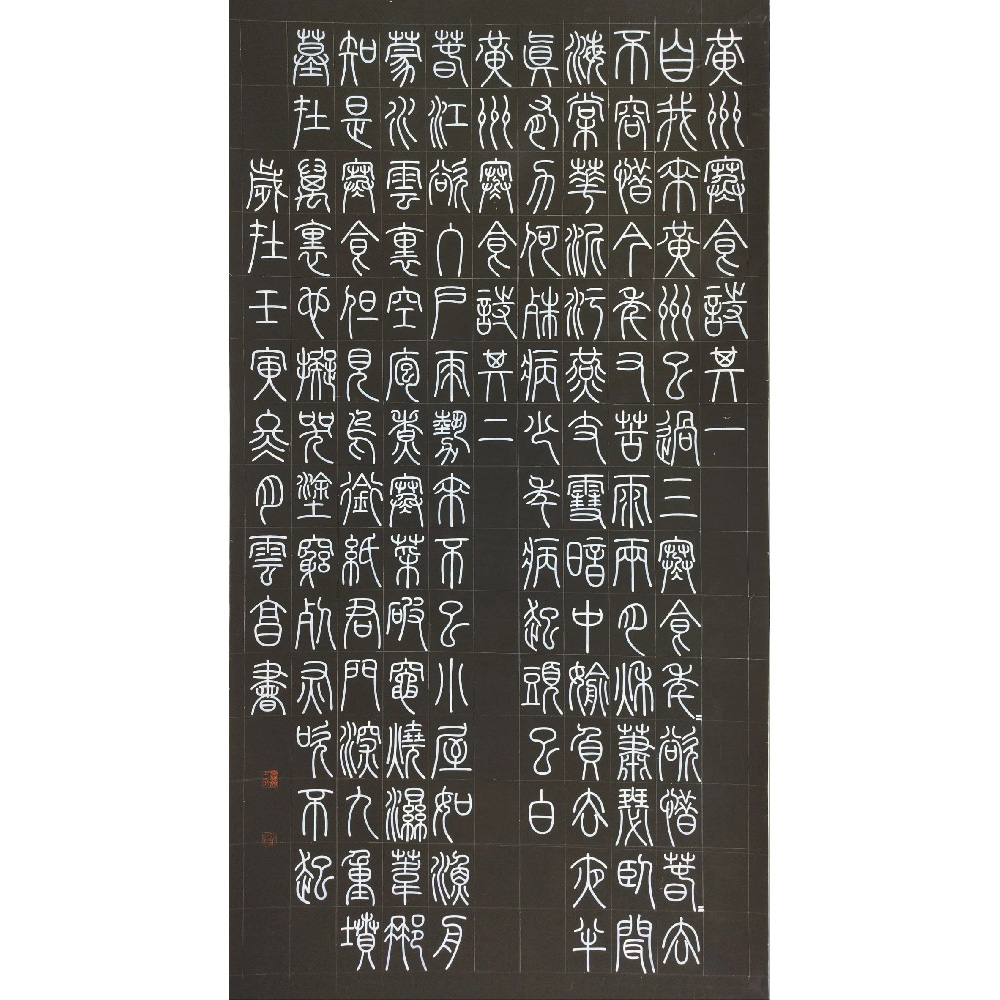 黃州寒食詩其一
自我來黃州已過三寒食年〻欲惜春〻去
不容惜今年又苦雨兩月秋蕭瑟臥聞
海棠華泥汙燕支雪暗中媮負去夜半
真有力何殊病少年病起頭已白
黃州寒食詩其二
春江欲入戶雨勢來不已小屋如漁舟
蒙水雲裏空庖煮寒菜破竈燒濕葦那
知是寒食但見烏銜紙君門深九重墳
墓在萬裏也擬哭塗窮死灰吹不起
歲在壬寅冬月雲高書